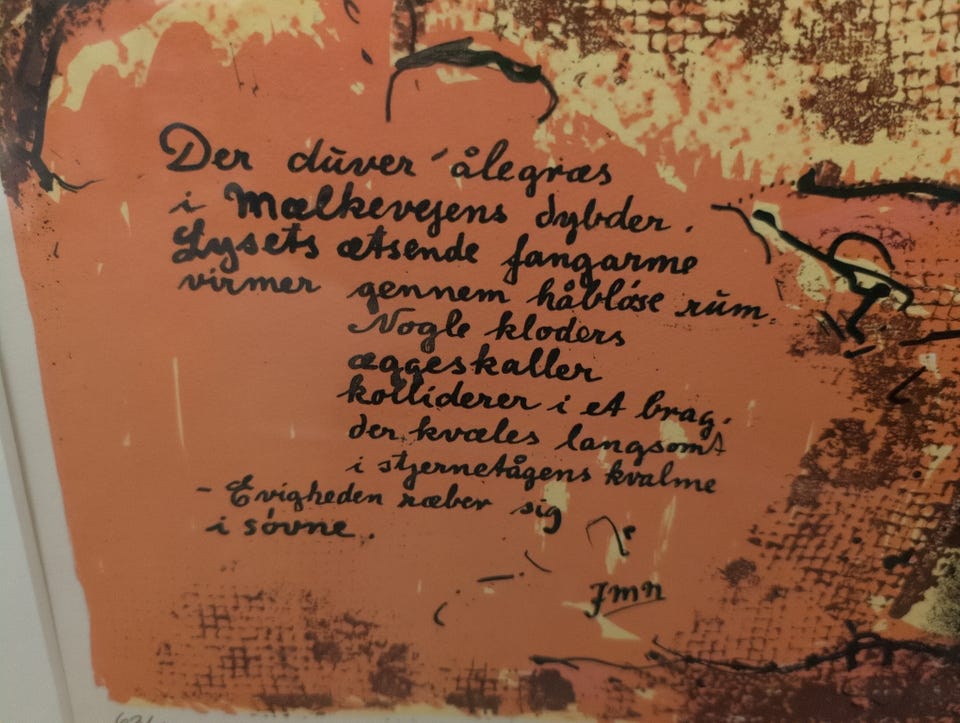 Der duver ålegræs
i Mælkevejens dybder.
Lysets ætsende fangarme
virmer gennem håbløse rum.
Nogle kloders
æggeskaller
kolliderer i et brag.
der kvæles langsomt
i stjernetågens kvalme
- Evigheden ræber sig
i søvne.
Jmn